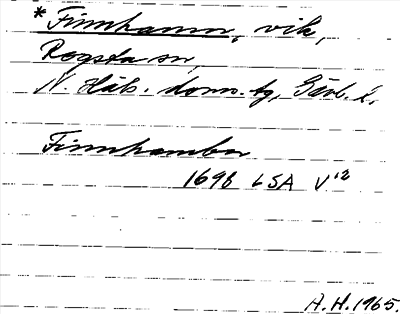 * Finnhamn, vik,
Rogsta sn,
N. Häls. domn. tg, Gävl. l.
Finnhambn
1698 LSA V¹²
A.H. 1965.